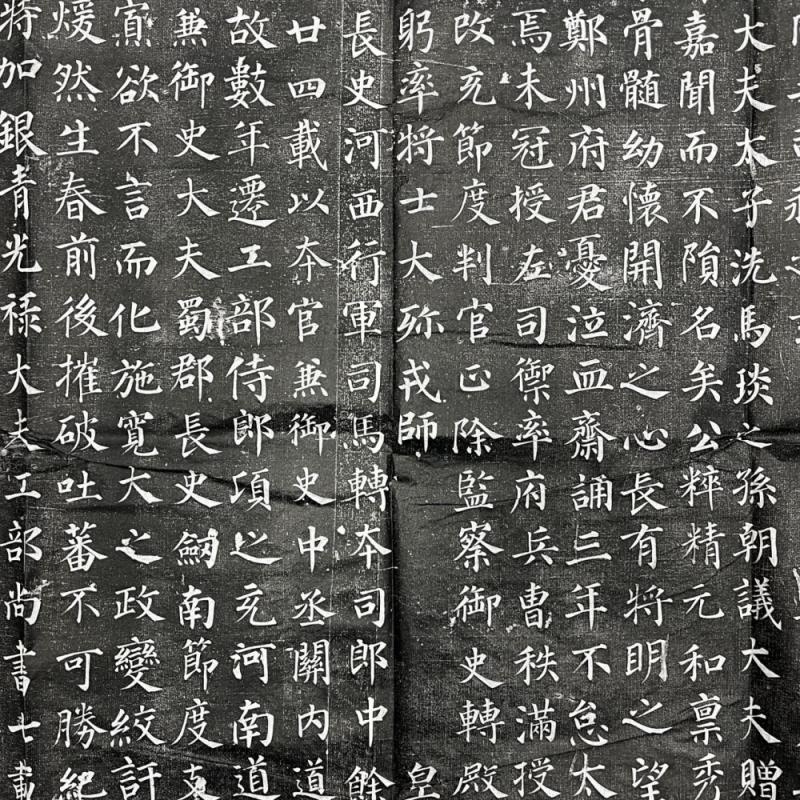 大夫太子洗馬琰之孫朝議大夫贈
嘉聞而不隕名矣公粹精元和稟秀
骨髓幼懷開濟之心長有將明之望
鄭州府君憂泣血齋誦三年不怠太
焉未冠授左司禦率府兵曹秩滿授
改充節度判官正除監察御史轉殿
躬率將士大殄戎師 皇
長史河西行軍司馬轉本司郎中餘
廿四載以本官兼御史中丞關内道
故數年遷工部侍郎頃之充河南道
兼御史大夫蜀郡長史劒南節度支
寡欲不言而化施寬大之政變絞訐
煖然生春前後摧破吐蕃不可勝紀
特加銀青光祿大夫工部尚書七載